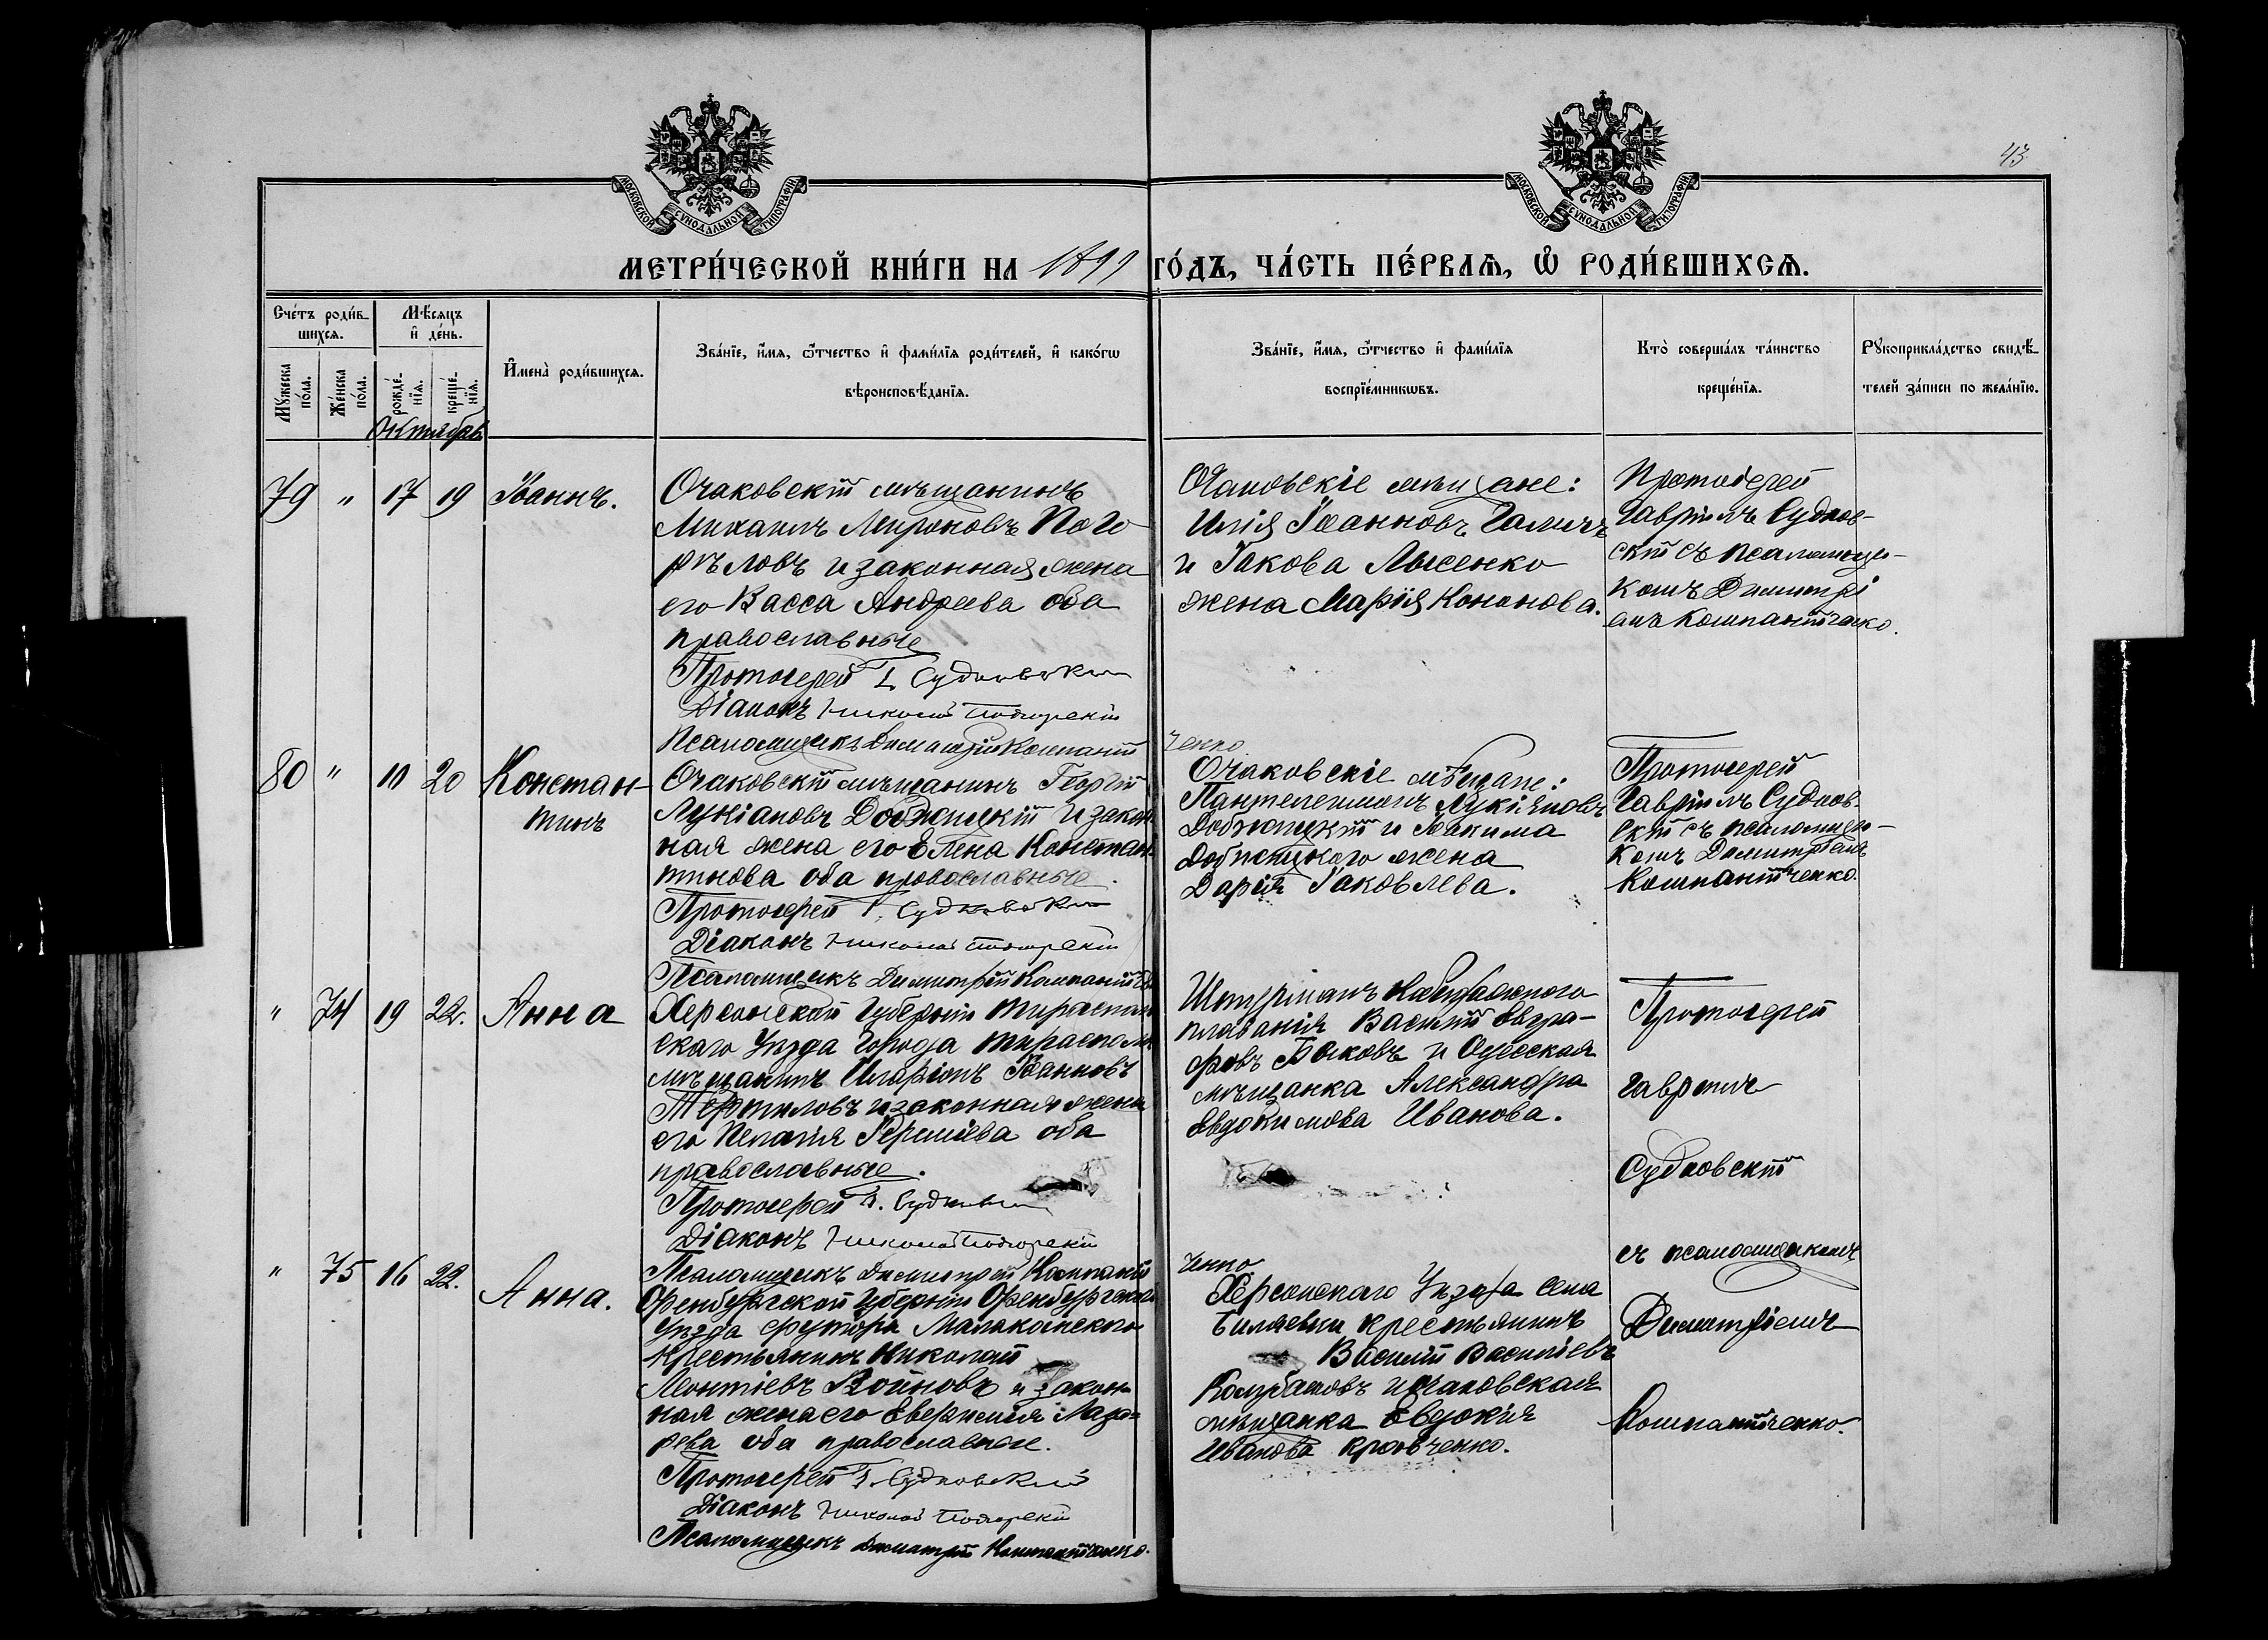 43
МОСКОВСКОЙ СѴНОДАЛЬНОЙ ТИПОГРАФІИ
МОСКОВСКОЙ СѴНОДАЛЬНОЙ ТИПОГРАФІИ
МЕТРИ́ЧЕСКОЙ КНИ́ГИ НА 1899 ГО́ДЪ, ЧА́СТЬ ПЕ́РВАѦ, Ѽ РОДИ́ВШИХСѦ.
Сче́тъ роди́в-
шихсѧ.
Мѣ́сѧцъ
и҆ де́нь.
Мꙋ́жеска по́ла.
Же́нска по́ла.
рожде́-
нїѧ.
креще́-
нїѧ.
Октябрь
И҆мена̀ роди́вшихсѧ.
Зва́нїе, и҆́мѧ, ѻ҆́тчество и҆ фами́лїѧ роди́телей, и҆ како́гѡ
вѣроисповѣ́данїѧ.
Зва́нїе, и҆́мѧ, ѻ҆́тчество и҆ фами́лїѧ
воспрїе́мникѡвъ.
Кто̀ соверша́лъ та́инство
креще́нїѧ.
Рꙋкоприкла́дство свидѣ́-
телей за́писи по жела́нїю.
79 " 17 19 Іоаннъ.
Очаковскій мѣщанинъ
Михаилъ Мироновъ Пого
рѣловъ и законная жена
его Васса Андреева оба
православные
Протоіерей Г. Судковскій
Діаконъ Николай Подгорскій
Псаломщикъ Димитрій Компаній
ченко
Очаковскіе мѣщане:
Илія Іоанновъ Галичъ
и Іакова Лысенко
жена Марія Кононова.
Протоіерей
Гавріилъ Судков-
скій съ псаломщи-
комъ Димитрі
емъ Компанійченко.
80 " 10 20 Констан-
тинъ
Очаковскій мѣщанинъ Георгій
Лукіановъ Добжицкій и закон
ная жена его Елена Констан-
тинова оба православные.
Протоіерей Г. Судковскій
Діаконъ Николай Подгорскій
Псаломщикъ Димитрій Компаній
Очаковскіе мѣщане:
Пантелеимонъ Лукіяновъ
Добжицкій и Іоакима
Добжицкаго жена
Дарія Іаковлева.
Протоіерей
Гавріилъ Судков-
скій съ псаломщи-
комъ Димитріемъ
Компанійченко.
" 74 19 22. Анна
Херсонской Губерніи Тираспол
скаго Уѣзда Города Тирасполя
мѣщанинъ Иларіонъ Іоанновъ
Терпиловъ и законная жена
его Пелагія Іереміева оба
православные.
Протоіерей Г. Судковскій
Діаконъ Николай Подгорскій
Псаломщикъ Димитрій Компаній
ченко
Штурманъ Каботажного
плаванія Василій Евгра-
фовъ Быковъ и Одесская
мѣщанка Александра
Евдокимова Иванова.
Протоіерей
Гавріилъ
Судковскій
съ псаломщикомъ
Димитріемъ
Компанійченко.
" 75 16 22. Анна.
Оренбургской Губерніи Оренбургскаго
Уѣзда хутора
Крестьянинъ Николай
Леонтіевъ Войновъ и закон-
ная жена его Евфимія Лаза-
рева оба православные.
Протоіерей Г. Судковскій
Діаконъ Николай Подгорскій
Псаломщикъ Димитрій Компанійченко.
Херсонскаго Уѣзда села
Биляевки крестьянинъ
Василій Василіевъ
и Очаковская
мѣщанка Евдокія
Иванова Кравченко.